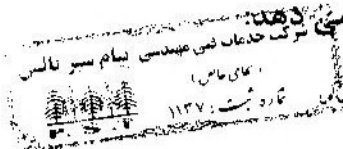 می دهند:
شرکت خدمات فنی مهندسی پیام سبز تالش
(سهامی خاص)
شماره ثبت: ۱۱۳۷